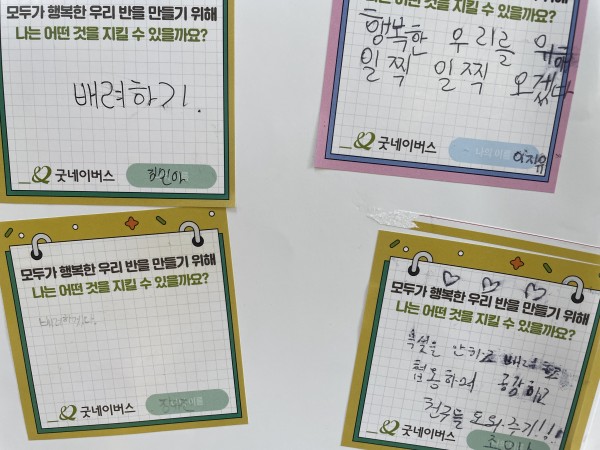 모두가 행복한 우리 반을 만들기 위해
나는 어떤 것을 지킬 수 있을까요?
배려하기.
굿네이버스
정민아
행복한 우리를 위해
일찍 일찍 오겠다
굿네이버스
나의 이름
이지유
모두가 행복한 우리 반을 만들기 위해
나는 어떤 것을 지킬 수 있을까요?
배려하기.
굿네이버스
이름
모두가 행복한 우리 반을 만들기 위해
나는 어떤 것을 지킬 수 있을까요?
욕설을 안하고 배려
협동하여 공감하고
친구를 도와주기!!!
굿네이버스